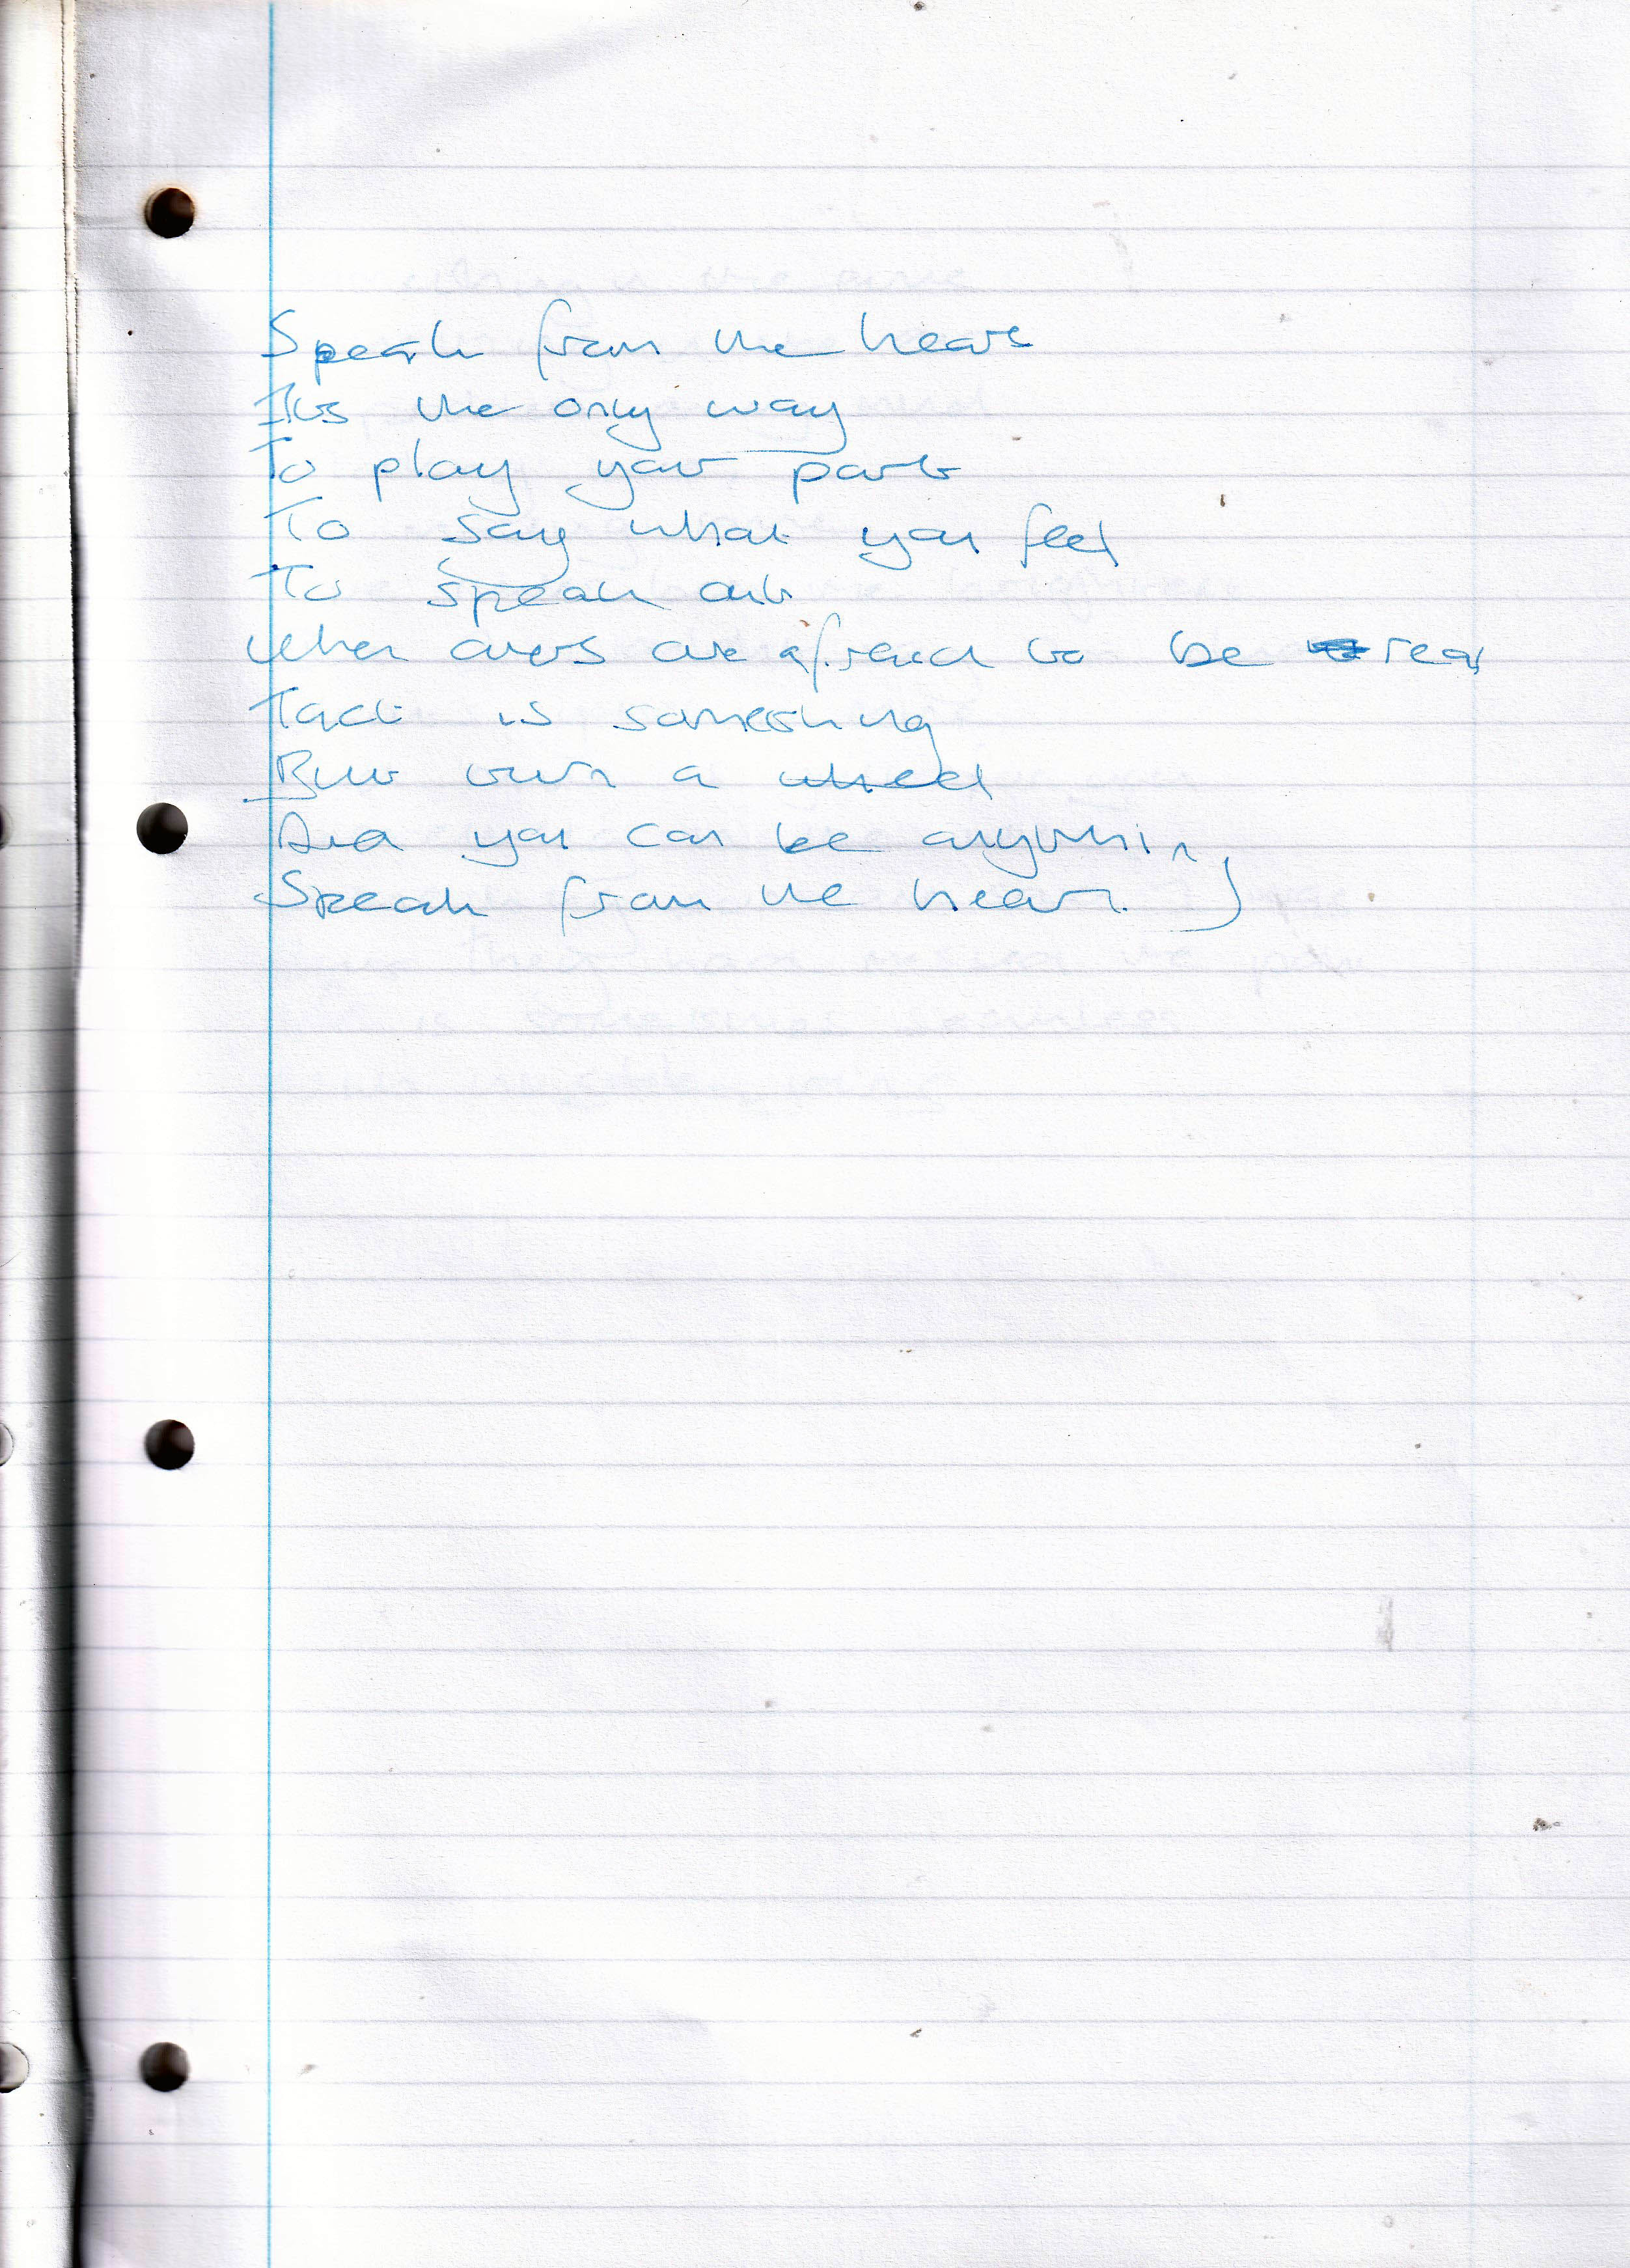 Speak from the heart
Its the only way
To play your part
To say what you feel
To speak out
When others are afraid to be real
Tact is something
But turn a wheel
And you can be anything
Speak from the heart.